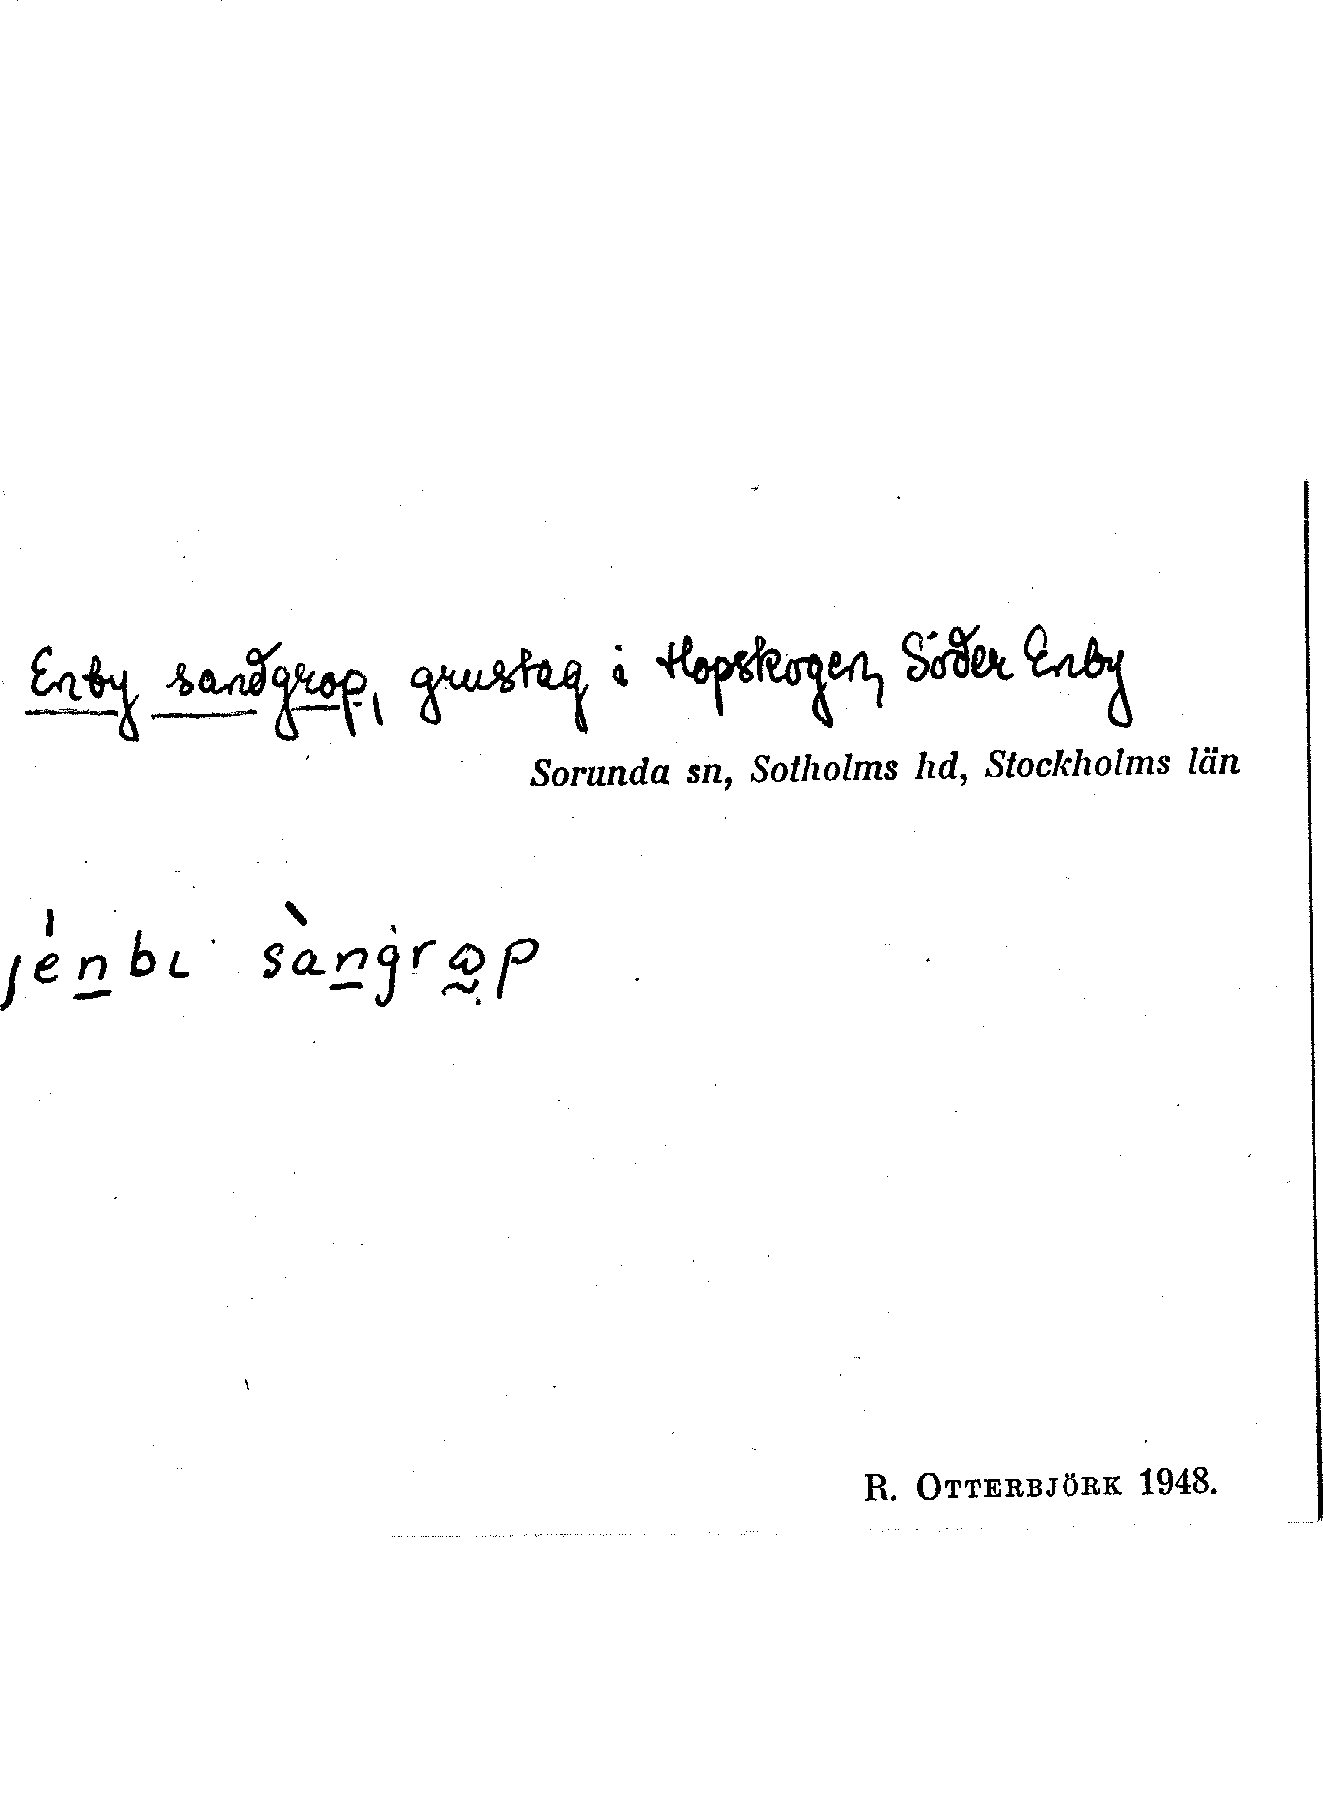 Enby sandgrop, grustag i Hopskogen, Söder Enby
Sorunda sn, Sotholms hd, Stockholms län
jénbɩ sàngrɷp
R. OTTERBJÖRK 1948.